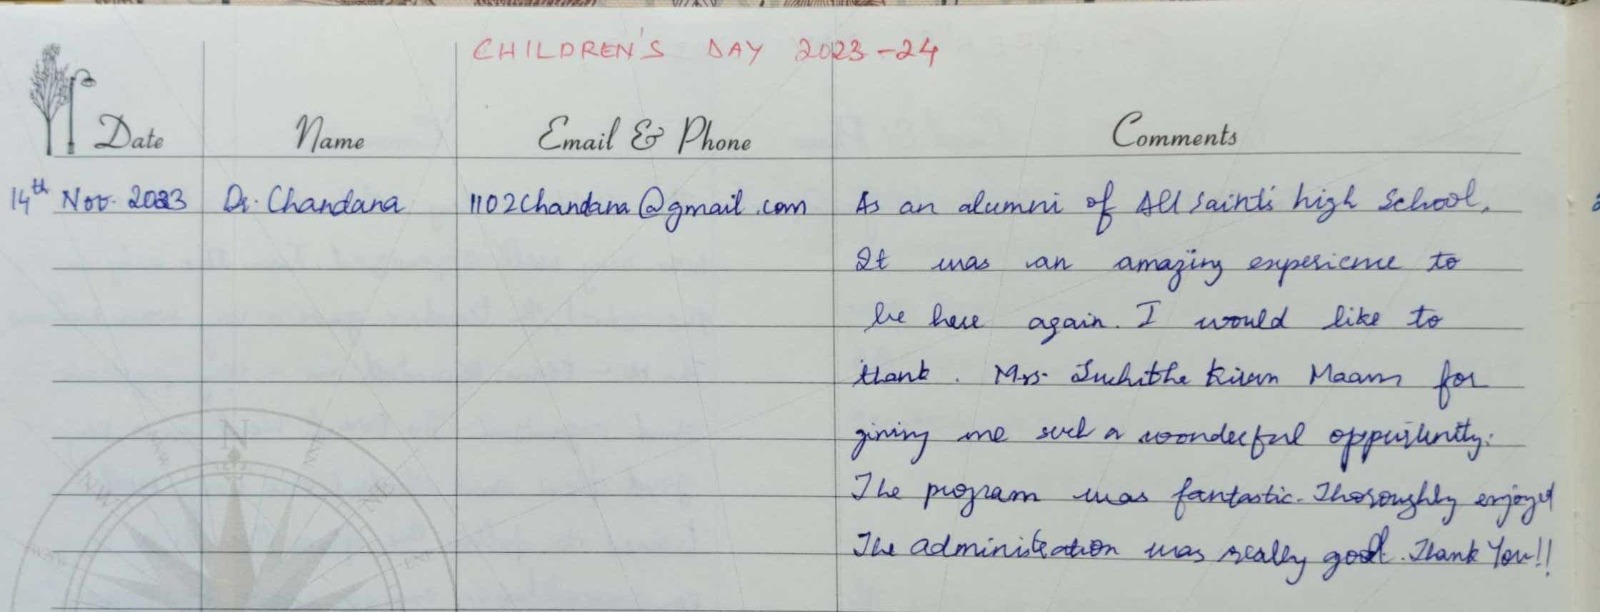 CHILDREN'S DAY 2023-24
Date Name Email & Phone Comments
14th Nov. 2023 Dr. Chandana 1102chandana@gmail.com As an alumni of All Saint's high School,
It was an amazing experience to
be here again. I would like to
thank. Mrs. Suchitha Kiran Maam for
giving me such a wonderful opportunity.
The program was fantastic. Thoroughly enjoyed
The administration was really good. Thank You!!
N
NW
NE